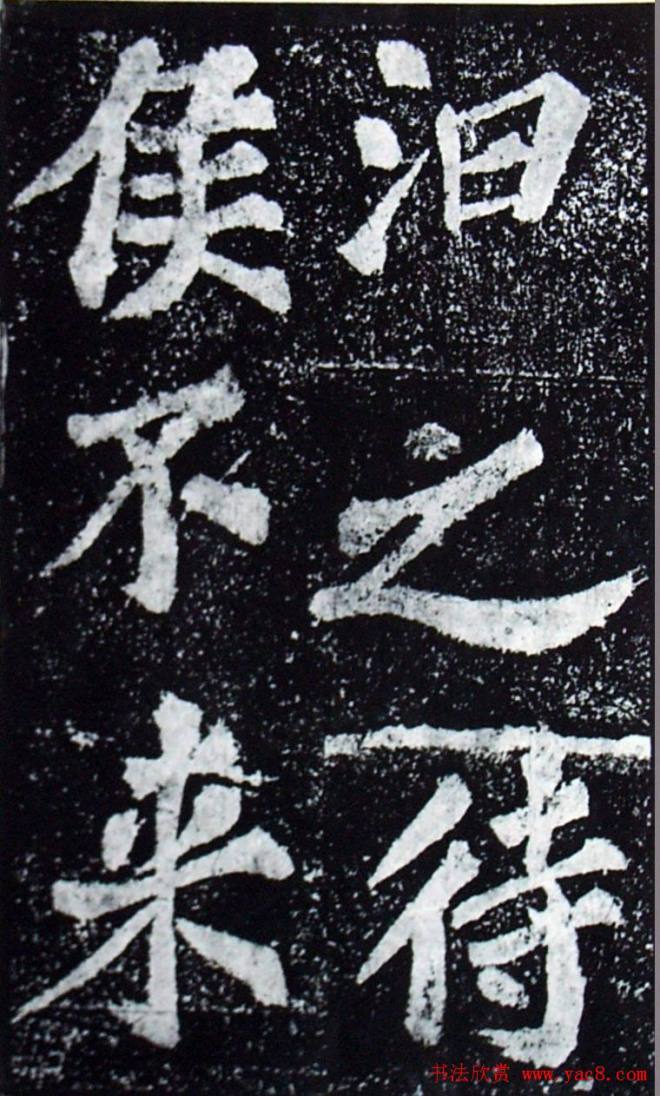 汩之待
侯不来
书法欣赏 www.yac8.com